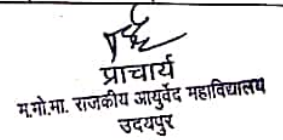 प्राचार्य
म.गो.मा. राजकीय आयुर्वेद महाविद्यालय
उदयपुर